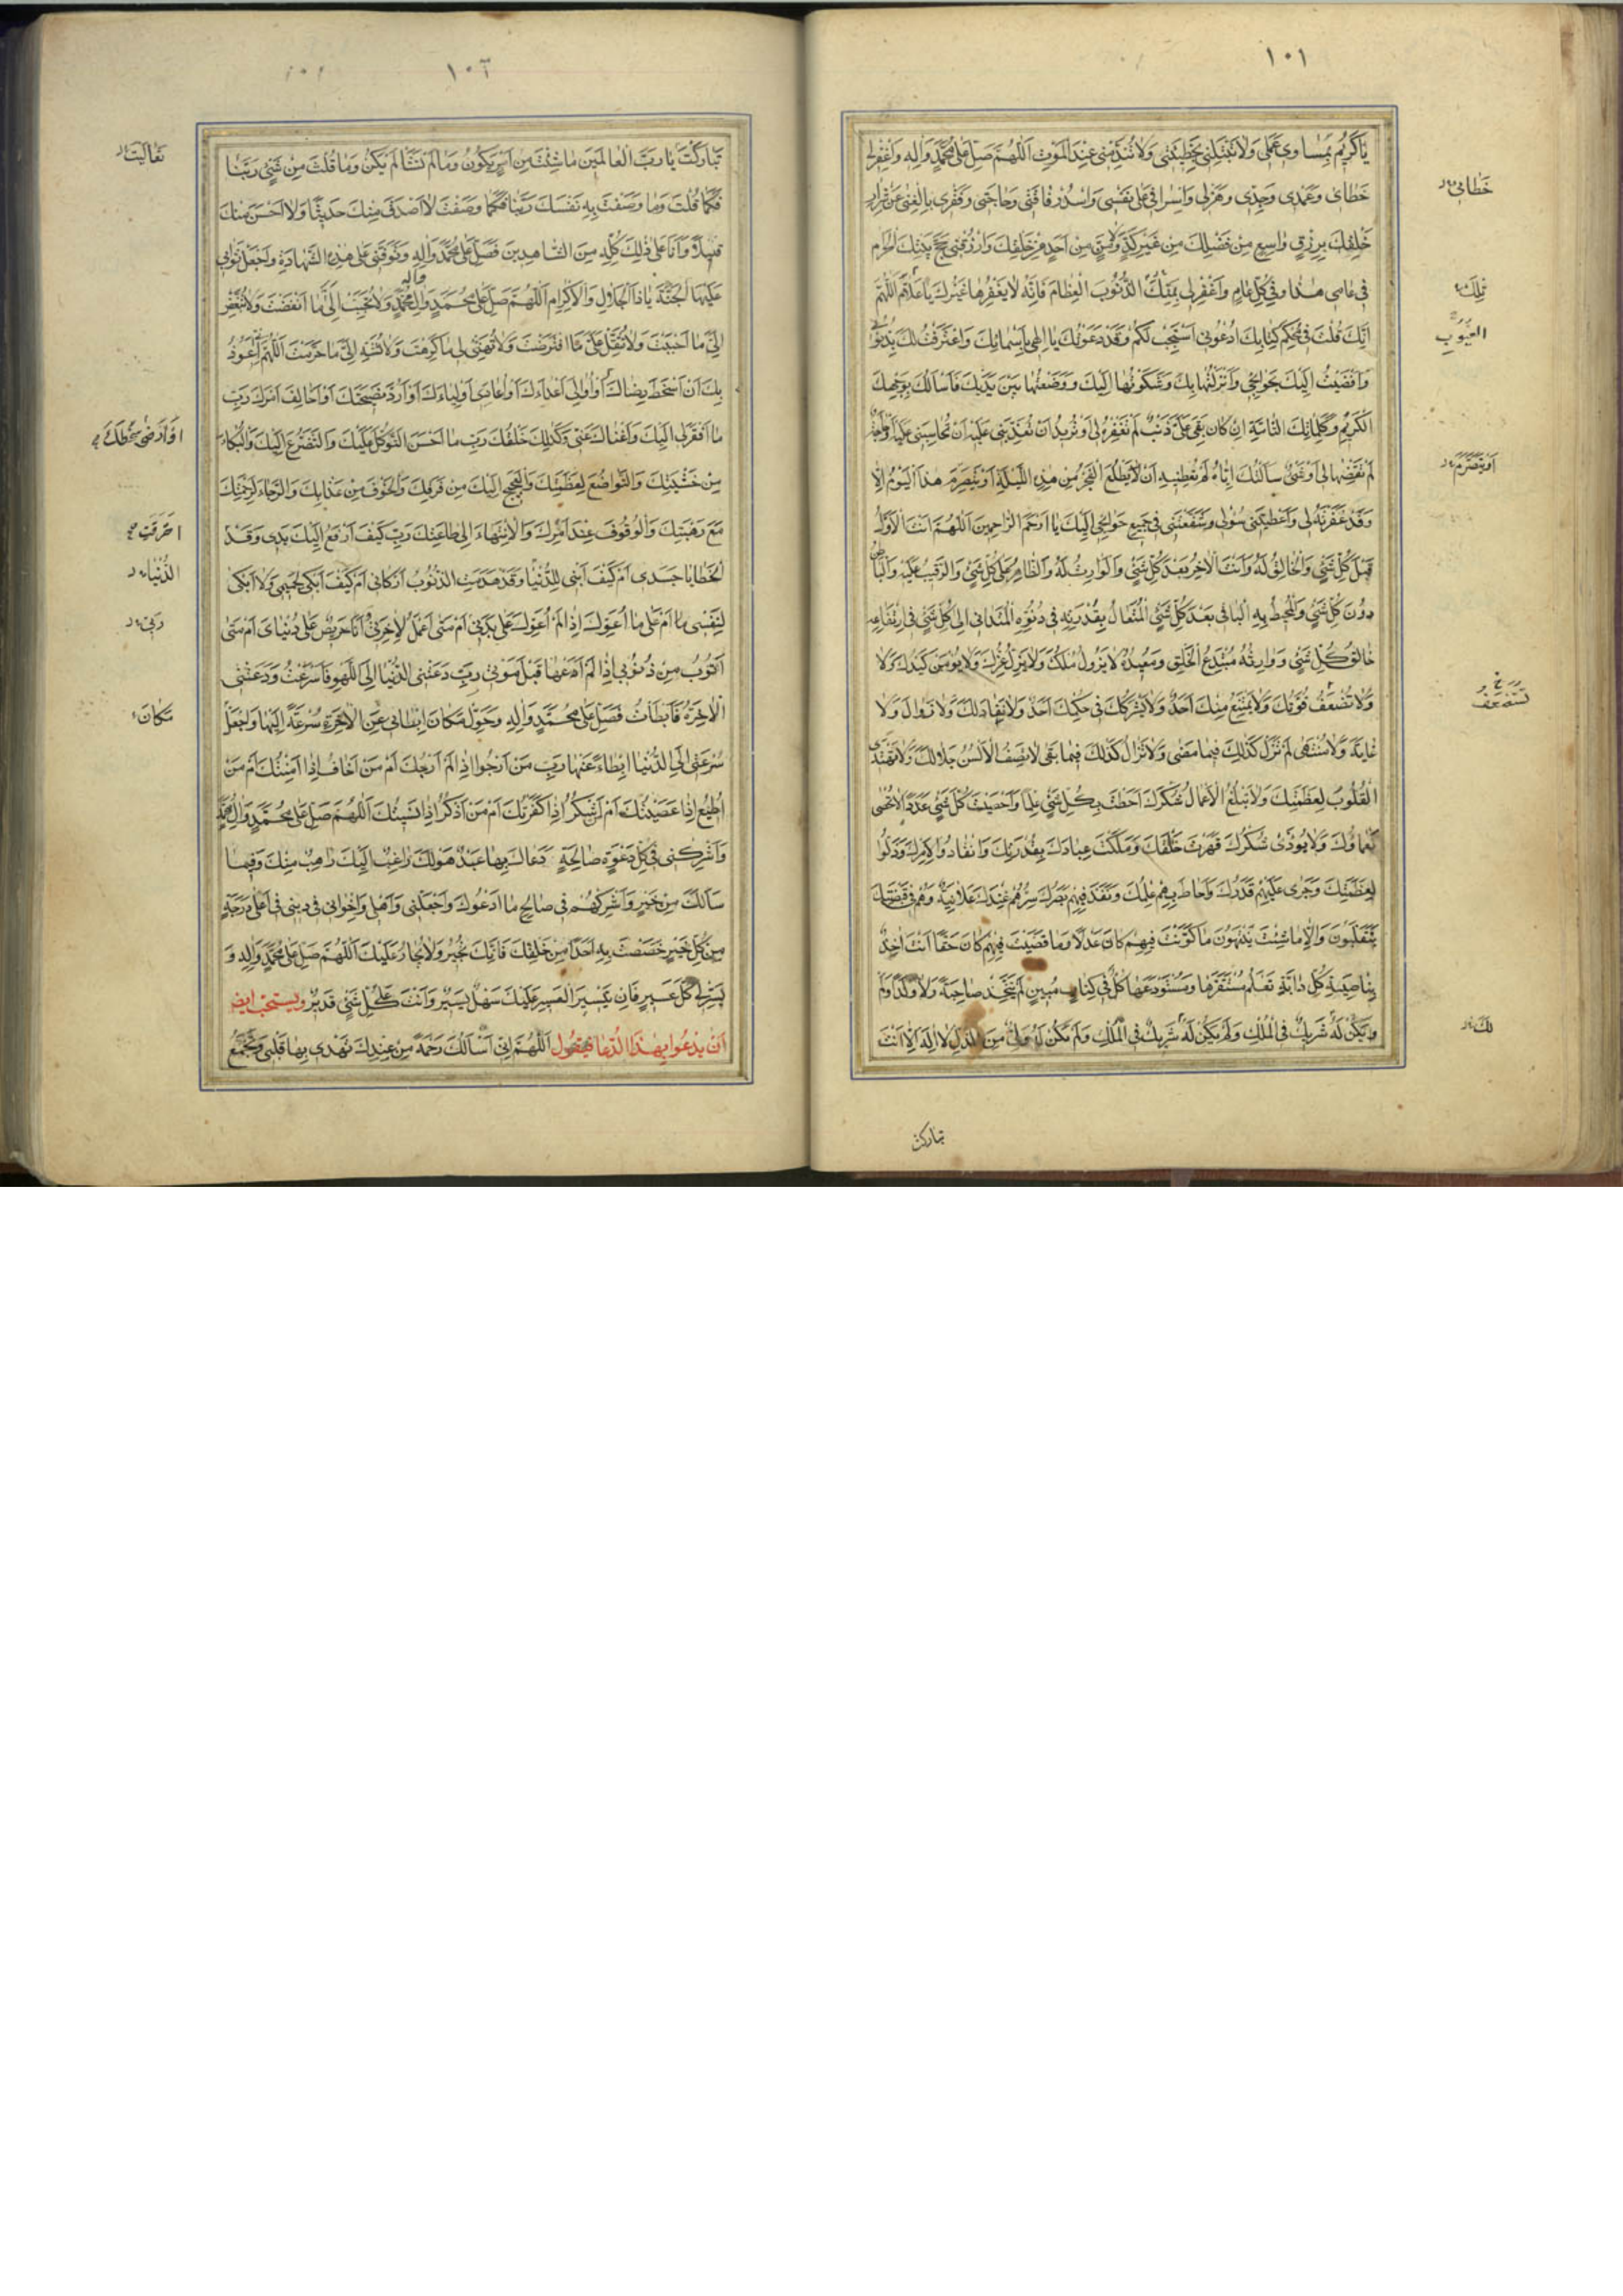 ١٠١
يَا كَرِيمُ بِمَسَاوِي عَمَلِي وَلَا تَبْتَلِنِي بِخَطِيئَتِي وَلَا تُنَدِّمْنِي عِنْدَ الْمَوْتِ اَللّٰهُمَّ صَلِّ عَلَى مُحَمَّدٍ وَآلِهِ وَاغْفِرْ لِي
خَطَاىَ وَعَمْدِى وَجِدِّى وَهَزْلِى وَاِسْرَافِى عَلَى نَفْسِى وَاسْدُدْ فَاقَتِى وَحَاجَتِى وَفَقْرِى بِالْغِنَى عَنْ شِرَارِ
خَلْقِكَ بِرِزْقٍ وَاسِعٍ مِنْ فَضْلِكَ مِنْ غَيْرِ كَدٍّ وَلَا مَنٍّ مِنْ اَحَدٍ مِنْ خَلْقِكَ وَارْزُقْنِى حَجَّ بَيْتِكَ الْحَرَامِ
فِى عَامِى هٰذَا وَفِى كُلِّ عَامٍ وَاغْفِرْ لِى الذُّنُوبَ الْعِظَامَ فَاِنَّهُ لَا يَغْفِرُهَا غَيْرُكَ يَا عَلَّامُ اَللّٰهُمَّ
اِنَّكَ قُلْتَ فِى مُحْكَمِ كِتَابِكَ ادْعُونِى اَسْتَجِبْ لَكُمْ وَقَدْ دَعَوْتُكَ يَا اِلٰهِى بِاَسْمَائِكَ وَاعْتَرَفْتُ لَكَ بِذُنُوبِى
وَاَفْضَيْتُ اِلَيْكَ بِحَوَائِجِى وَاَنْزَلْتُهَا بِكَ وَشَكَوْتُهَا اِلَيْكَ وَوَضَعْتُهَا بَيْنَ يَدَيْكَ فَاَسْاَلُكَ بِوَجْهِكَ
الْكَرِيمِ وَكَلِمَاتِكَ التَّامَّةِ اِنْ كَانَ بَقِىَ عَلَىَّ ذَنْبٌ لَمْ تَغْفِرْهُ لِى اَوْ تُرِيدُ اَنْ تُعَذِّبَنِى عَلَيْهِ اَنْ تُحَاسِبَنِى عَلَيْهِ اَوْ حَاجَةٌ
لَمْ تَقْضِهَا لِى اَوْ شَىْءٌ سَاَلْتُكَ اِيَّاهُ لَمْ تُعْطِنِيهِ اَنْ لَا يَطْلُعَ الْفَجْرُ مِنْ هٰذِهِ اللَّيْلَةِ اَوْ يَتَصَرَّمَ هٰذَا الْيَوْمُ اِلَّا
وَقَدْ غَفَرْتَهُ لِى وَاَعْطَيْتَنِى سُؤْلِى وَشَفَّعْتَنِى فِى جَمِيعِ حَوَائِجِى اِلَيْكَ يَا اَرْحَمَ الرَّاحِمِينَ اَللّٰهُمَّ اَنْتَ الْاَوَّلُ
قَبْلَ كُلِّ شَىْءٍ وَالْخَالِقُ لَهُ وَاَنْتَ الْاٰخِرُ بَعْدَ كُلِّ شَىْءٍ وَالْوَارِثُ لَهُ وَالظَّاهِرُ عَلَى كُلِّ شَىْءٍ وَالرَّقِيبُ عَلَيْهِ وَالْبَاطِنُ
دُونَ كُلِّ شَىْءٍ وَالْمُحِيطُ بِهِ الْبَاقِى بَعْدَ كُلِّ شَىْءٍ الْمُتَعَالُ بِقُدْرَتِهِ فِى دُنُوِّهِ الْمُتَدَانِى اِلَى كُلِّ شَىْءٍ فِى ارْتِفَاعِهِ
خَالِقُ كُلِّ شَىْءٍ وَوَارِثُهُ مُبْتَدِعُ الْخَلْقِ وَمُعِيدُهُ لَا يَزُولُ مُلْكُكَ وَلَا يَذِلُّ عِزُّكَ وَلَا يُؤْمَنُ كَيْدُكَ وَلَا
وَلَا تُضْعَفُ قُوَّتُكَ وَلَا يَمْتَنِعُ مِنْكَ اَحَدٌ وَلَا يَشْرَكُكَ فِى حُكْمِكَ اَحَدٌ وَلَا نَفَادَ لَكَ وَلَا زَوَالَ وَلَا
غَايَةَ وَلَا مُنْتَهَى لَمْ تَزَلْ كَذٰلِكَ فِيمَا مَضَى وَلَا تَزَالُ كَذٰلِكَ فِيمَا بَقِىَ لَا تَصِفُ الْاَلْسُنُ جَلَالَكَ وَلَا تَهْتَدِى
الْقُلُوبُ لِعَظَمَتِكَ وَلَا تَبْلُغُ الْاَعْمَالُ شُكْرَكَ اَحَطْتَ بِكُلِّ شَىْءٍ عِلْمًا وَاَحْصَيْتَ كُلَّ شَىْءٍ عَدَدًا لَا تُحْصَى
نَعْمَاؤُكَ وَلَا يُؤَدَّى شُكْرُكَ قَهَرْتَ خَلْقَكَ وَمَلَكْتَ عِبَادَكَ بِقُدْرَتِكَ وَانْقَادُوا لِاَمْرِكَ وَذَلُّوا
لِعَظَمَتِكَ وَجَرَى عَلَيْهِمْ قَدَرُكَ وَاَحَاطَ بِهِمْ عِلْمُكَ وَنَفَذَ فِيهِمْ بَصَرُكَ سِرُّهُمْ عِنْدَكَ عَلَانِيَةٌ وَهُمْ فِى قَبْضَتِكَ
يَتَقَلَّبُونَ وَاِلَى مَا شِئْتَ يَنْتَهُونَ مَا كَوَّنْتَ فِيهِمْ كَانَ عَدْلًا وَمَا قَضَيْتَ فِيهِمْ كَانَ حَقًّا اَنْتَ اٰخِذٌ
بِنَاصِيَةِ كُلِّ دَابَّةٍ تَعْلَمُ مُسْتَقَرَّهَا وَمُسْتَوْدَعَهَا كُلٌّ فِى كِتَابٍ مُبِينٍ لَمْ تَتَّخِذْ صَاحِبَةً وَلَا وَلَدًا وَلَمْ
يَكُنْ لَهُ شَرِيكٌ فِى الْمُلْكِ وَلَمْ يَكُنْ لَهُ شَرِيكٌ فِى الْمُلْكِ وَلَمْ يَكُنْ لَهُ وَلِىٌّ مِنَ الذُّلِّ لَا اِلٰهَ اِلَّا اَنْتَ
خَطَائِى
تِلْكَ
الْعُيُوبِ
اَوْ يَتَصَرَّمَ
تُسْتَضْعَفُ
لَكَ
تبارکت
١٠٢
تَبَارَكْتَ يَا رَبَّ الْعَالَمِينَ مَا شِئْتَ مِنْ اَمْرٍ يَكُونُ وَمَا لَمْ تَشَأْ لَمْ يَكُنْ وَمَا قُلْتَ مِنْ شَىْءٍ رَبَّنَا
فَكَمَا قُلْتَ وَمَا وَصَفْتَ بِهِ نَفْسَكَ رَبَّنَا فَكَمَا وَصَفْتَ لَا اَصْدَقَ مِنْكَ حَدِيثًا وَلَا اَحْسَنَ مِنْكَ
قِيلًا وَاَنَا عَلَى ذٰلِكَ كُلِّهِ مِنَ الشَّاهِدِينَ فَصَلِّ عَلَى مُحَمَّدٍ وَآلِهِ وَتَوَفَّنِى عَلَى هٰذِهِ الشَّهَادَةِ وَاجْعَلْ ثَوَابِى
عَلَيْهَا الْجَنَّةَ يَا ذَا الْجَلَالِ وَالْاِكْرَامِ اَللّٰهُمَّ صَلِّ عَلَى مُحَمَّدٍ وَآلِ مُحَمَّدٍ وَلَا تُحَبِّبْ اِلَىَّ مَا اَبْغَضْتَ وَلَا تُبَغِّضْ
اِلَىَّ مَا اَحْبَبْتَ وَلَا تُثَقِّلْ عَلَىَّ مَا افْتَرَضْتَ وَلَا تُهَيِّئْ لِى مَا كَرِهْتَ وَلَا تُشَهِّ اِلَىَّ مَا حَرَّمْتَ اَللّٰهُمَّ اَعُوذُ
بِكَ اَنْ اَسْخَطَ رِضَاكَ اَوْ اُوَالِىَ اَعْدَاءَكَ اَوْ اُعَادِىَ اَوْلِيَاءَكَ اَوْ اَرُدَّ نَصِيحَتَكَ اَوْ اُخَالِفَ اَمْرَكَ رَبِّ
مَا اَفْقَرَنِى اِلَيْكَ وَاَغْنَاكَ عَنِّى وَكَذٰلِكَ خَلْقُكَ رَبِّ مَا اَحْسَنَ التَّوَكُّلَ عَلَيْكَ وَالتَّضَرُّعَ اِلَيْكَ وَالْبُكَاءَ
مِنْ خَشْيَتِكَ وَالتَّوَاضُعَ لِعَظَمَتِكَ وَالْعَجَّ اِلَيْكَ مِنْ فَرَقِكَ وَالْخَوْفَ مِنْ عَذَابِكَ وَالرَّجَاءَ لِرَحْمَتِكَ
مَعَ رَهْبَتِكَ وَالْوُقُوفَ عِنْدَ اَمْرِكَ وَالْاِنْتِهَاءَ اِلَى طَاعَتِكَ رَبِّ كَيْفَ اَرْفَعُ اِلَيْكَ يَدِى وَقَدْ
الْخَطَايَا جَسَدِى اَمْ كَيْفَ اَبْنِى لِلدُّنْيَا وَقَدْ هَدَمَتِ الذُّنُوبُ اَرْكَانِى اَمْ كَيْفَ اَبْكِى لِحَمِيمِى وَلَا اَبْكِى
لِنَفْسِى اَمْ عَلَى مَا اُعَوِّلُ اِذَا لَمْ اُعَوِّلْ عَلَى بَدَنِى اَمْ مَتَى اَعْمَلُ لِاٰخِرَتِى وَاَنَا حَرِيصٌ عَلَى دُنْيَاىَ اَمْ مَتَى
اَتُوبُ مِنْ ذُنُوبِى اِذَا لَمْ اَدَعْهَا قَبْلَ مَوْتِى رَبِّ دَعَتْنِى الدُّنْيَا اِلَى اللَّهْوِ فَاَسْرَعْتُ وَدَعَتْنِى
الْاٰخِرَةُ فَاَبْطَأْتُ فَصَلِّ عَلَى مُحَمَّدٍ وَآلِهِ وَحَوِّلْ مَكَانَ اِبْطَائِى عَنِ الْاٰخِرَةِ سُرْعَةً اِلَيْهَا وَاجْعَلْ
سُرْعَتِى اِلَى الدُّنْيَا اِبْطَاءً عَنْهَا رَبِّ مَنْ اَرْجُو اِذَا لَمْ اَرْجُكَ اَمْ مَنْ اَخَافُ اِذَا اَمِنْتُكَ اَمْ مَنْ
اُطِيعُ اِذَا عَصَيْتُكَ اَمْ مَنْ اَشْكُرُ اِذَا كَفَرْتُكَ اَمْ مَنْ اَذْكُرُ اِذَا نَسِيتُكَ اَللّٰهُمَّ صَلِّ عَلَى مُحَمَّدٍ وَآلِ مُحَمَّدٍ
وَاَشْرِكْنِى فِى كُلِّ دَعْوَةٍ صَالِحَةٍ دَعَاكَ بِهَا عَبْدٌ هُوَ لَكَ رَاغِبٌ اِلَيْكَ رَاهِبٌ مِنْكَ وَفِيمَا
سَاَلَكَ مِنْ خَيْرٍ وَاَشْرِكْهُمْ فِى صَالِحِ مَا اَدْعُوكَ وَاجْعَلْنِى وَاَهْلِى وَاِخْوَانِى فِى دِينِى فِى اَعْلَى دَرَجَةٍ
مِنْ كُلِّ خَيْرٍ خَصَصْتَ بِهِ اَحَدًا مِنْ خَلْقِكَ فَاِنَّكَ تُجِيرُ وَلَا يُجَارُ عَلَيْكَ اَللّٰهُمَّ صَلِّ عَلَى مُحَمَّدٍ وَآلِهِ وَ
يَسِّرْ لِى كُلَّ عَسِيرٍ فَاِنَّ تَيْسِيرَ الْعَسِيرِ عَلَيْكَ سَهْلٌ يَسِيرٌ وَاَنْتَ عَلَى كُلِّ شَىْءٍ قَدِيرٌ ويستحب ايضا
اَنْ يدعوا بهذا الدعا فيقول اَللّٰهُمَّ اِنِّى اَسْاَلُكَ رَحْمَةً مِنْ عِنْدِكَ تَهْدِى بِهَا قَلْبِى وَتَجْمَعُ
تَعَالَيْتَ
اَوْ اَرْضَى سَخَطَكَ
اَحْرَقَتِ
الدُّنْيَا
رَبِّى
مَكَانَ